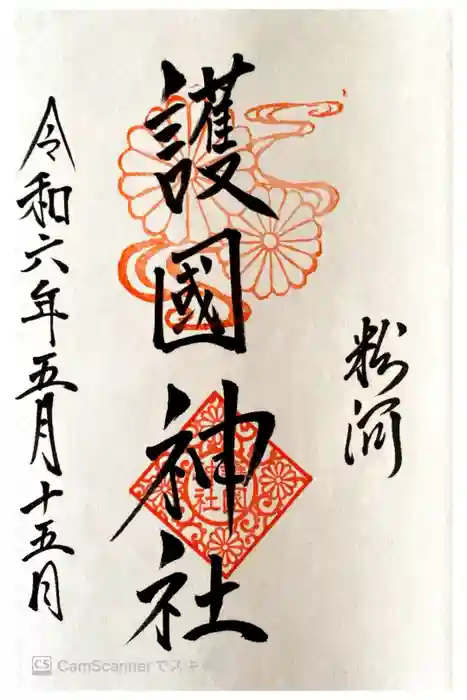 粉河
護國神社
令和六年五月十五日
CS CamScannerでスキ